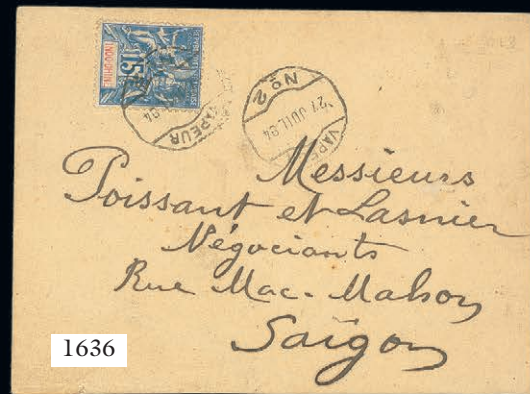 INDO-CHINE
15
VAPEUR
94
No 2
27 JUIL. 94
VAPE
Messieurs
Poissant et Lasnier
Négociants
Rue Mac-Mahon
Saïgon
1636